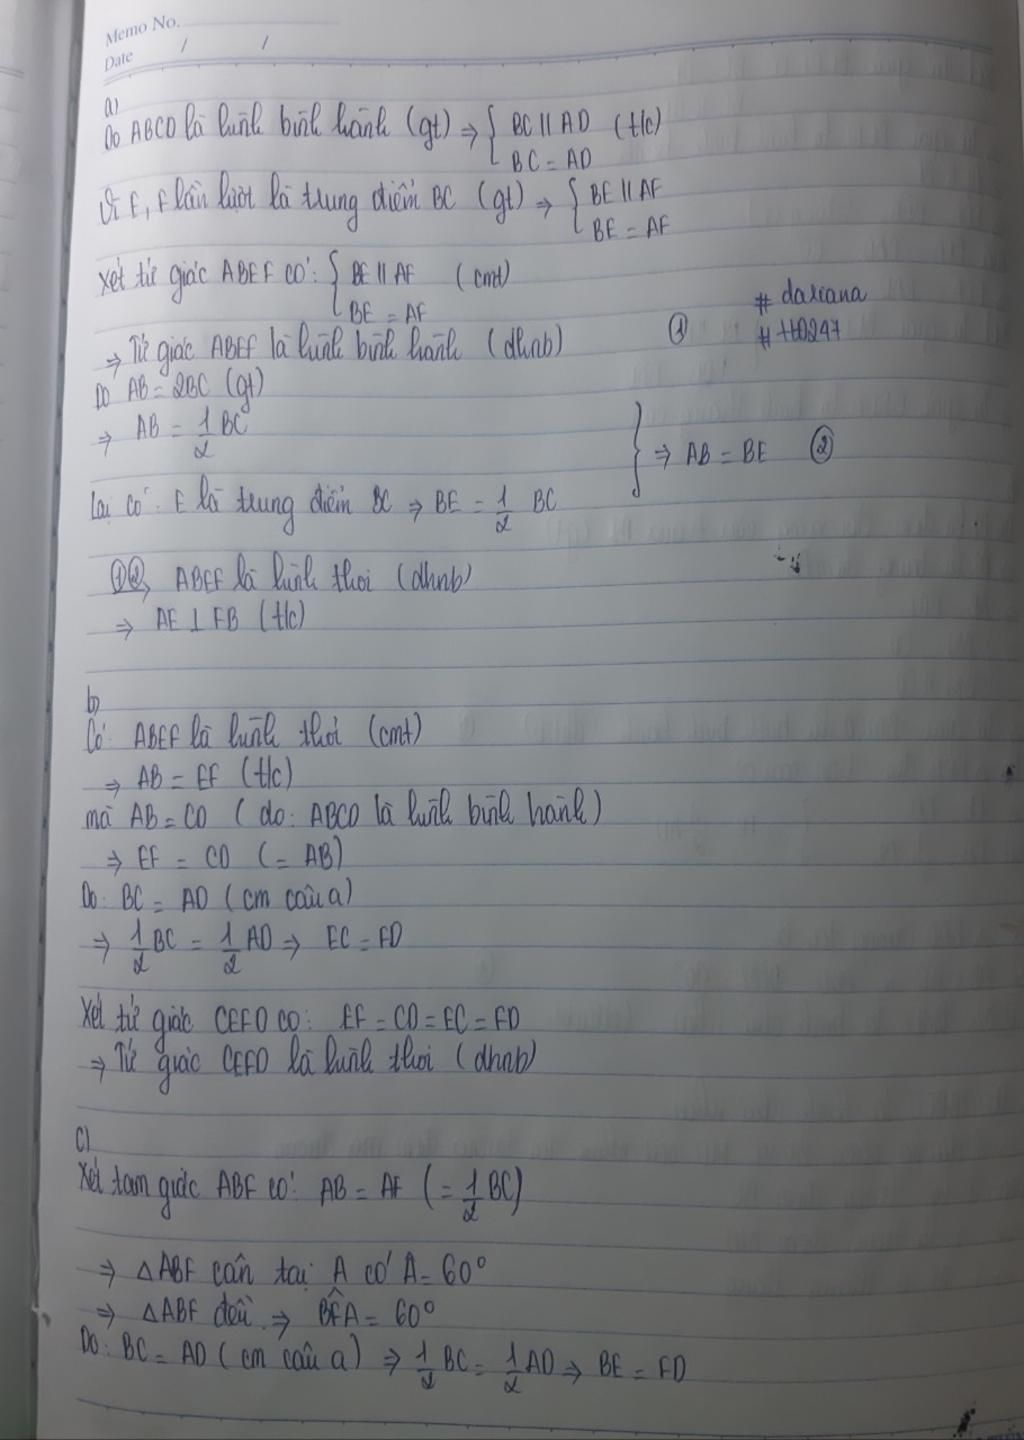 Memo No.
Date / /
a)
Do ABCD là hình bình hành (gt) ⇒ { BC // AD (t/c)
BC = AD
Vì E, F lần lượt là trung điểm BC (gt) ⇒ { BE // AF
BE = AF
Xét tứ giác ABEF có: { BE // AF (cmt)
BE = AF
# daxiana
⇒ Tứ giác ABEF là hình bình hành (dhnb) ①
# tt0247
Do AB = 2BC (gt)
⇒ AB = 1/2 BC
} ⇒ AB = BE ②
Lại có: E là trung điểm BC ⇒ BE = 1/2 BC
①②, ABEF là hình thoi (dhnb)
⇒ AE ⊥ FB (t/c)
b)
Có: ABEF là hình thoi (cmt)
⇒ AB = EF (t/c)
mà AB = CD ( do: ABCD là hình bình hành )
⇒ EF = CD (= AB)
Do: BC = AD ( cm câu a)
⇒ 1/2 BC = 1/2 AD ⇒ EC = FD
Xét tứ giác CEFD có: EF = CD = EC = FD
⇒ Tứ giác CEFD là hình thoi (dhnb)
c)
Xét tam giác ABF có: AB = AF (= 1/2 BC)
⇒ △ABF cân tại A có A = 60°
⇒ △ABF đều ⇒ BFA = 60°
Do: BC = AD ( cm câu a) ⇒ 1/2 BC = 1/2 AD ⇒ BE = FD